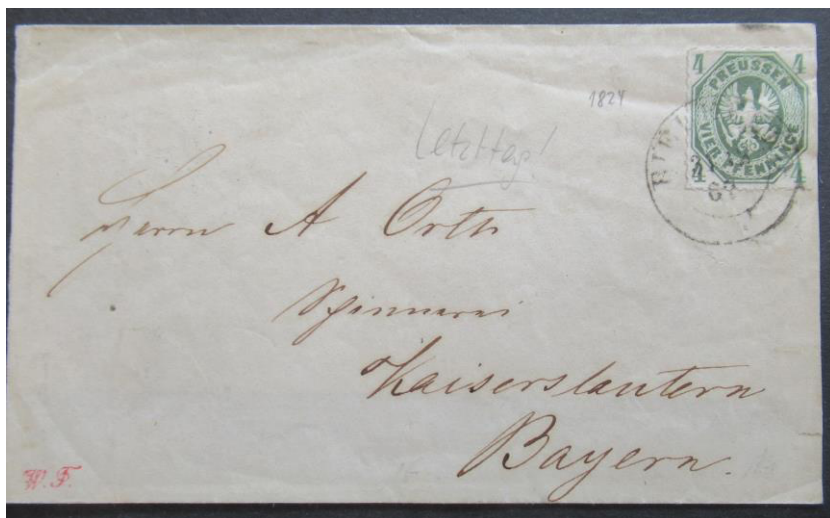 4 4
PREUSSEN
VIER PFENNINGE
4 4
67
1824
Letzttag!
Herrn A Orth
Spinnerei
Kaiserslautern
Bayern.
W. F.